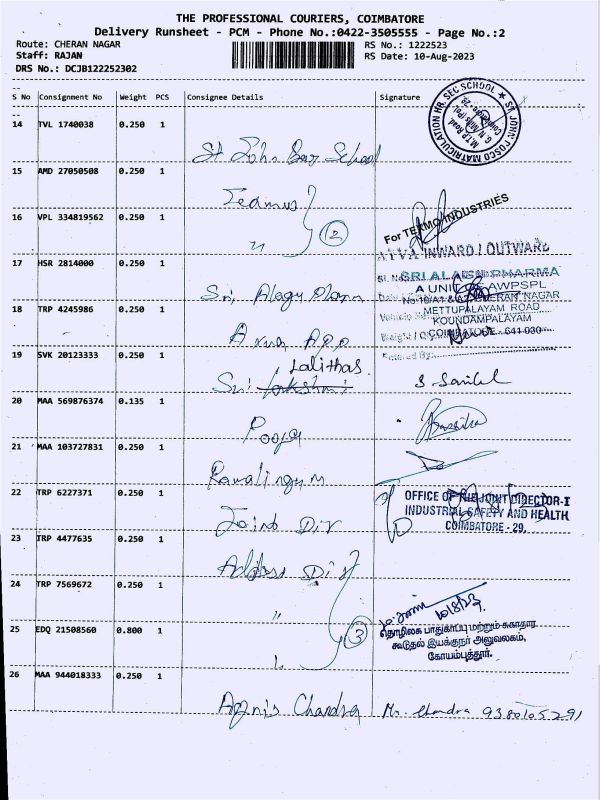 THE PROFESSIONAL COURIERS, COIMBATORE
Delivery Runsheet - PCM - Phone No.:0422-3505555 - Page No.:2
Route: CHERAN NAGAR
RS No.: 1222523
Staff: RAJAN
RS Date: 10-Aug-2023
DRS No.: DCJB122252302
S No Consignment No Weight PCS Consignee Details Signature
ST. JOHN BOSCO MATRICULATION HR. SEC SCHOOL ★
M.T.P. Road,
G.N. Mills (Po),
14 TVL 1740038 0.250 1
St John School
15 AMD 27050508 0.250 1
16 VPL 334819562 0.250 1
2
For TEXMO INDUSTRIES
INWARD / OUTWARD
17 HSR 2814000 0.250 1
Sri
SRI ALAGU PHARMA
A UNIT OF AWPSPL
CHERAN NAGAR
METTUPALAYAM ROAD
KOUNDAMPALAYAM
COIMBATORE - 641 030
Entered By:
18 TRP 4245986 0.250 1
19 SVK 20123333 0.250 1
Lalithas
Sri
20 MAA 569876374 0.135 1
Pooja
21 MAA 103727831 0.250 1
Ramalingam
22 TRP 6227371 0.250 1
Joint Dir
OFFICE OF THE JOINT DIRECTOR-I
INDUSTRIAL SAFETY AND HEALTH
COIMBATORE - 29.
23 TRP 4477635 0.250 1
Dir
24 TRP 7569672 0.250 1
"
3
10/8/23
தொழிலக பாதுகாப்பு மற்றும் சுகாதார
கூடுதல் இயக்குநர் அலுவலகம்,
கோயம்புத்தூர்.
25 EDQ 21508560 0.800 1
26 MAA 944018333 0.250 1
Chandra